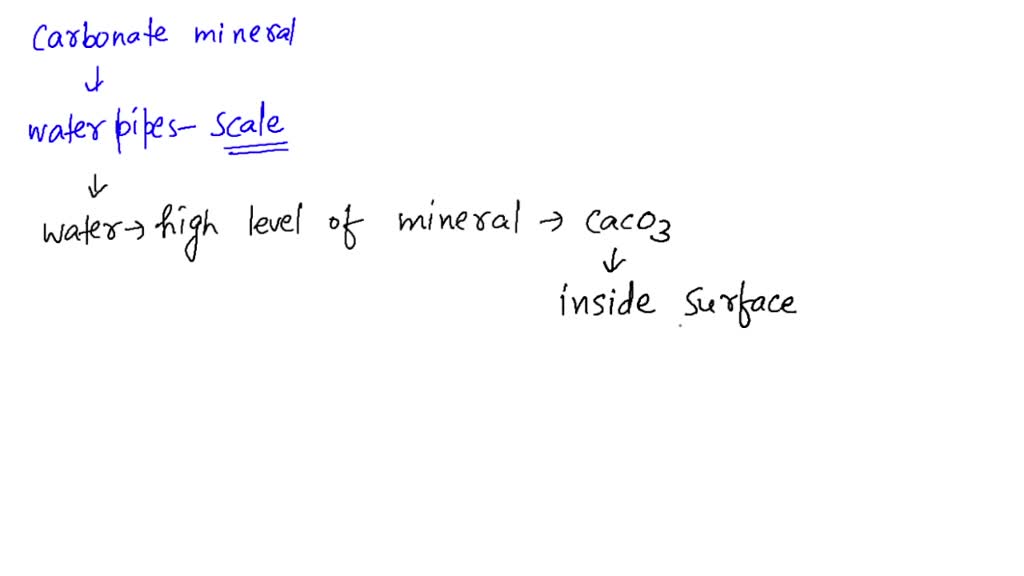 Carbonate mineral
↓
water pipes- scale
↓
water→ high level of mineral → CaCO3
↓
inside surface